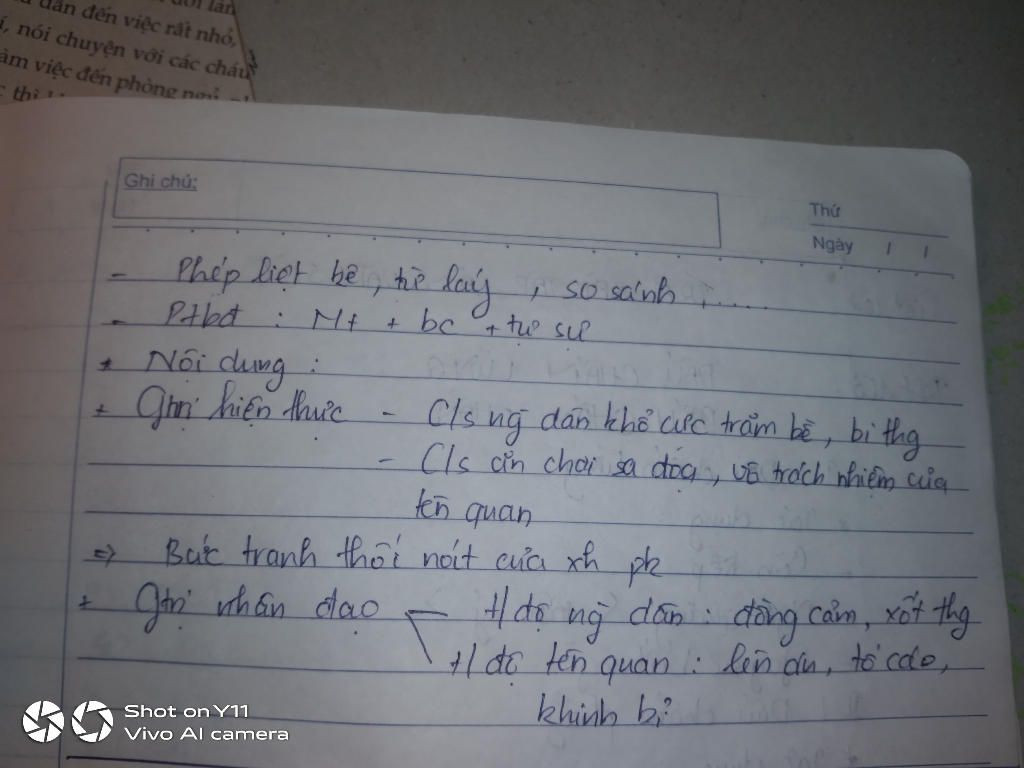 đôi lần
dẫn đến việc rất nhỏ,
í, nói chuyện với các cháu
àm việc đến phòng ngủ,
Ghi chú:
Thứ
Ngày / /
- Phép liệt kê, từ láy, so sánh, ....
- Ptbđ : Mt + bc + tự sự
* Nội dung :
+ Gtrị hiện thực - C/s ng dân khổ cực trăm bề, bi thg
- C/s ăn chơi sa đọa, vô trách nhiệm của
tên quan
=> Bức tranh thối nát của xh pk
+ Gtrị nhân đạo t/độ ng dân : đồng cảm, xót thg
t/độ tên quan : lên án, tố cáo,
khinh bỉ
Shot on Y11
Vivo AI camera